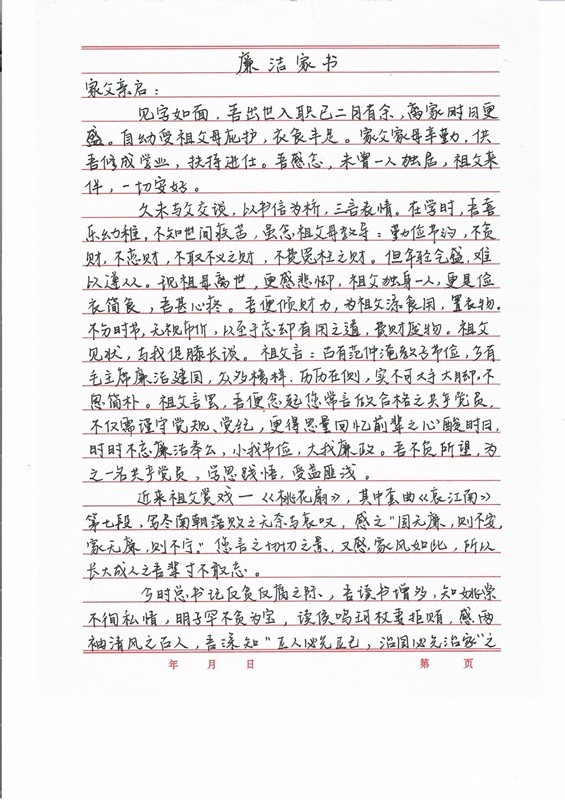 廉洁家书
家父亲启：
见字如面，吾出世入职已二月有余，离家时日更
盛。自幼受祖父母庇护，衣食丰足。家父家母辛勤，供
吾修成学业，扶持进仕。吾感念，未曾一人独居，祖父来
伴，一切安好。
久未与父交谈，以书信为桥，三言表情。在学时，吾喜
乐幼稚，不知世间疾苦，虽念祖父母教导：勤俭节约，不贪
财，不恋财，不取不义之财，不费冤枉之财。但年轻气盛，难
以遵从。祖母离世，更感悲恸，祖父独身一人，更是俭
衣简食，吾甚心疼。吾便倾财力，为祖父添食用，置衣物。
不分时节，无视市价，以至于忘却有用之道，费财废物。祖父
见状，与我促膝长谈。祖父言：古有范仲淹教子节俭，今有
毛主席廉洁建国，众多榜样，历历在侧，实不可大手大脚，不
思简朴。祖父言罢，吾便念起您常言做合格之共产党员，
不仅需谨守党规、党纪，更得思量回忆前辈之心酸时日，
时时不忘廉洁奉公，小我节俭，大我廉政。吾不负所望，为
之一名共产党员，学思践悟，受益匪浅。
近来祖父赏戏一《桃花扇》，其中套曲《哀江南》
第七段，写尽南朝落败之无奈与哀叹，感之“国无廉，则不安，
家无廉，则不宁。”您言之切切之景，又感家风如此，所以
长大成人之吾辈才不敢忘。
今时总书记反贪反腐之际，吾读书增多，知姚崇
不徇私情，明子罕不贪为宝，读侯鸣珂杖妻拒贿，感两
袖清风之古人，吾深知“正人必先正己，治国必先治家”之
年 月 日 第 页